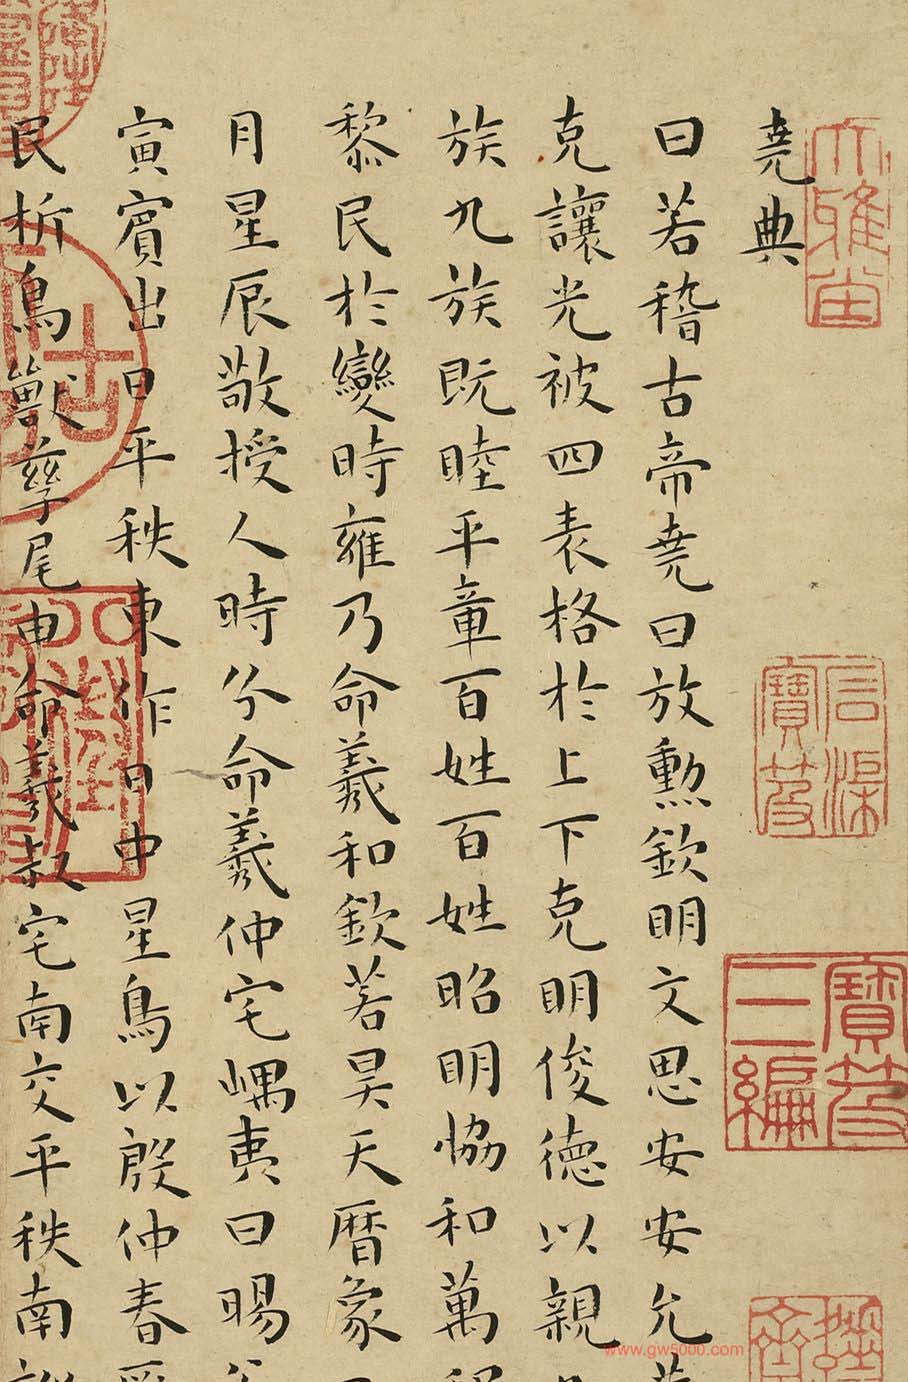 堯典
曰若稽古帝堯曰放勲欽明文思安安允
克讓光被四表格於上下克明俊德以親
族九族既睦平章百姓百姓昭明協和萬
黎民於變時雍乃命羲和欽若昊天曆象
月星辰敬授人時分命羲仲宅嵎夷曰暘
寅賓出日平秩東作日中星鳥以殷仲春
民析鳥獸孳尾申命羲叔宅南交平秩南
大雅
寶笈三編
石渠寶笈
www.gw5000.com